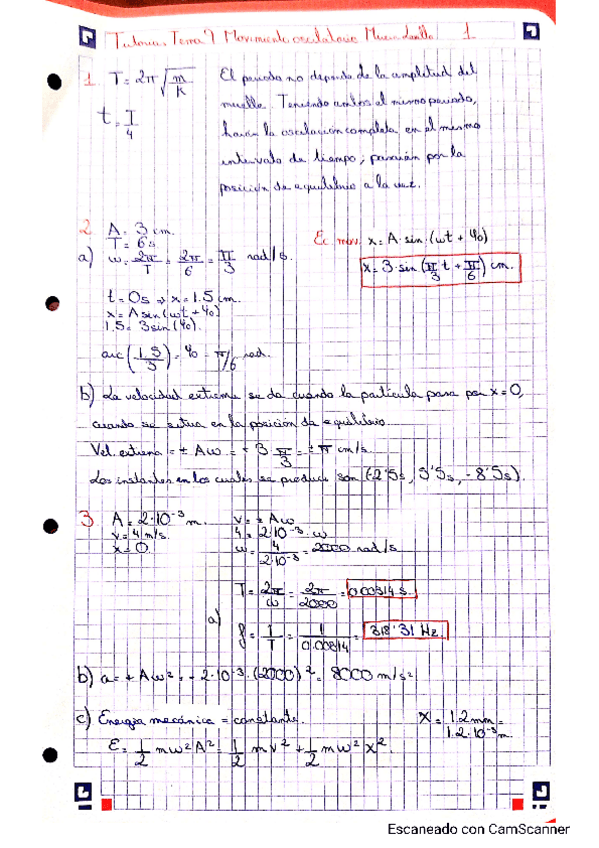 Tutoría Tema 7 Movimiento oscilatorio 1
1. T = 2π √(m/K)
t = T/4
El periodo no depende de la amplitud del
muelle. Teniendo ambos el mismo periodo,
harán la oscilación completa en el mismo
intervalo de tiempo; pasarán por la
posición de equilibrio a la vez.
2. A = 3 cm.
T = 6 s
a) ω = 2π/T = 2π/6 = π/3 rad/s.
Ec mov. x = A·sin (ωt + φ0)
x = 3·sin (π/3 t + π/6) cm.
t = 0s ⇒ x = 1.5 cm.
x = A sin (ωt + φ0)
1.5 = 3 sin (φ0).
arc (1.5/3) = φ0 = π/6 rad.
b) La velocidad extrema se da cuando la partícula pasa por x = 0,
cuando se sitúa en la posición de equilibrio.
Vel. extrema = ± Aω = ± 3 π/3 = ± π cm/s.
Los instantes en los cuales se produce son (-2'5s, 5'5s, -8'5s).
3 A = 2·10⁻³ m.
v = 4 m/s.
x = 0.
v = ± Aω
4 = 2·10⁻³·ω
ω = 4/2·10⁻³ = 2000 rad/s
T = 2π/ω = 2π/2000 = 0.00314 s.
a) f = 1/T = 1/0.00314 = 318'31 Hz.
b) a = ± Aω² = - 2·10⁻³·(2000)² = 8000 m/s²
c) Energía mecánica = constante.
x = 1.2 mm =
1.2·10⁻³ m.
E = 1/2 mω²A² = 1/2 mv² + 1/2 mω²x².
Escaneado con CamScanner